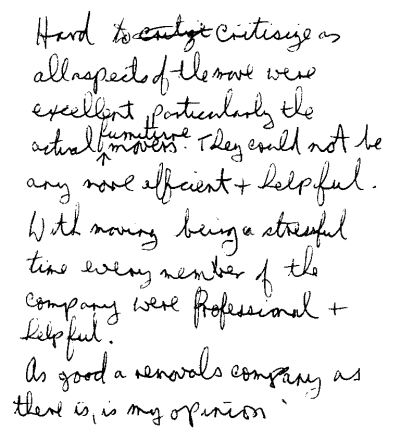 Hard to critisize as
all aspects of the move were
excellent particularly the
actual furniture movers. They could not be
any more efficient + helpful.
With moving being a stressful
time every member of the
company were Professional +
helpful.
As good a removals company as
there is, is my opinion